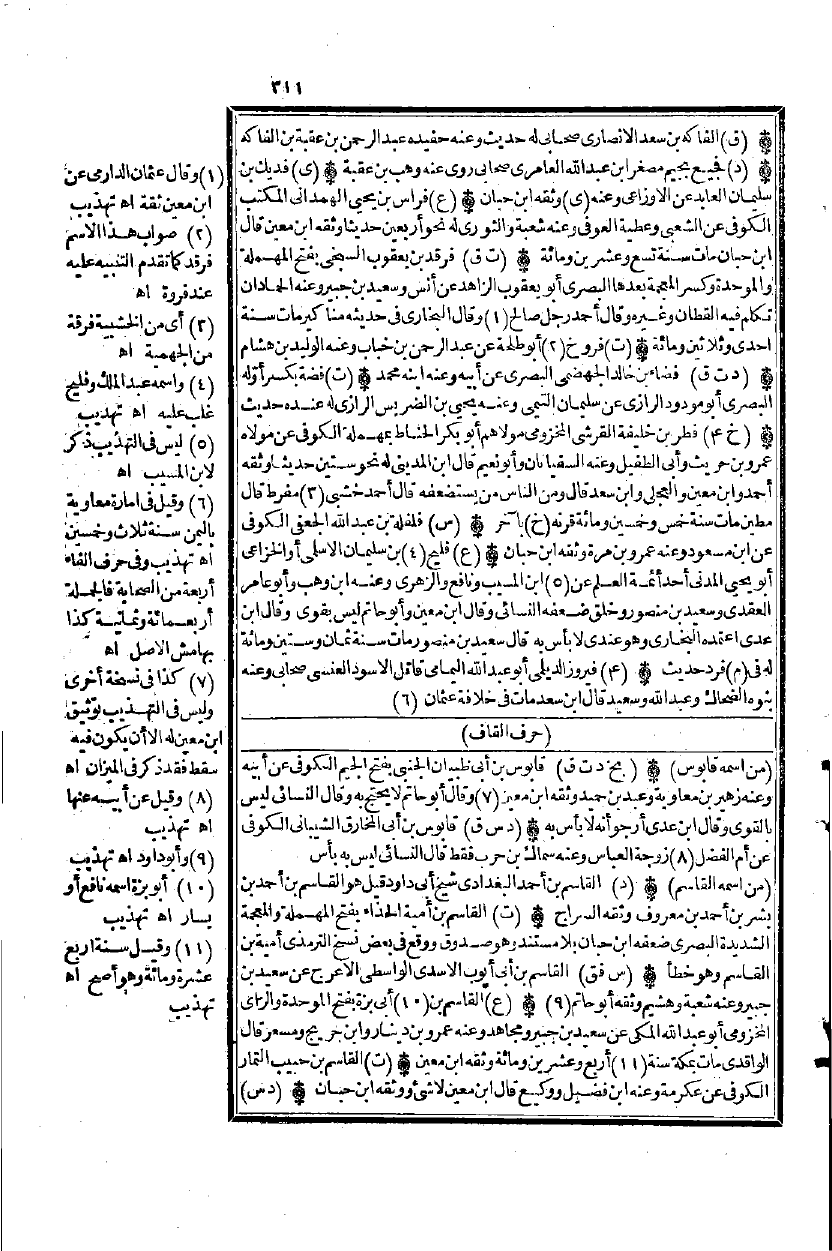 ٣١١
(ق) الفاكه بن سعد الانصارى صحابى له حديث وعنه حفيده عبدالرحمن بن عقبة بن الفاكه
(د) فجيع بجيم مصغر ابن عبدالله العامرى صحابى روى عنه وهب بن عقبة (ى) فديك بن
سليمان العابد عن الاوزاعى وعنه (ى) وثقه ابن حبان (ع) فراس بن يحيى الهمدانى المكتب
الكوفى عن الشعبى وعطية العوفى وعنه شعبة والثورى له نحو أربعين حديثا وثقه ابن معين قال
ابن حبان مات سنة تسع وعشرين ومائة (ت ق) فرقد بن يعقوب السبخى بفتح المهملة
والموحدة وكسر المعجمة بعدها البصرى أبو يعقوب الزاهد عن أنس وسعيد بن جبير وعنه الحمادان
تكلم فيه القطان وغيره وقال أحمد رجل صالح (١) وقال البخارى فى حديثه مناكير مات سنة
احدى وثلاثين ومائة (ت) فروخ (٢) أبو طلحة عن عبدالرحمن بن خباب وعنه الوليد بن هشام
(د ت ق) فضاء بن خالد الجهضمى البصرى عن أبيه وعنه ابنه محمد (ت) فضة بكسر أوله
البصرى أبو مودود الرازى عن سليمان التيمى وعنه يحيى بن الضريس الرازى له عنده حديث
(خ ٤) فطر بن خليفة القرشى المخزومى مولاهم أبو بكر الحناط بمهملة الكوفى عن مولاه
عمرو بن حريث وأبى الطفيل وعنه السفيانان وأبو نعيم قال ابن المدينى له نحو ستين حديثا وثقه
أحمد وابن معين والعجلى وابن سعد قال ومن الناس من يستضعفه قال أحمد خشبى (٣) مفرط قال
مطين مات سنة خمس وخمسين ومائة قرنه (خ) بآخر (س) فلفلة بن عبدالله الجعفى الكوفى
عن ابن مسعود وعنه عمرو بن مرة وثقه ابن حبان (ع) فليح (٤) بن سليمان الاسلمى أو الخزاعى
أبو يحيى المدنى أحد أئمة العلم عن (٥) ابن المسيب ونافع والزهرى وعنه ابن وهب وأبو عامر
العقدى وسعيد بن منصور وخلق ضعفه النسائى وقال ابن معين وأبو حاتم ليس بقوى وقال ابن
عدى اعتمده البخارى وهو عندى لا بأس به قال سعيد بن منصور مات سنة ثمان وستين ومائة
له فى (م) فرد حديث (٤) فيروز الديلمى أبو عبدالله اليمامى قاتل الاسود العنسى صحابى وعنه
بنوه الضحاك وعبدالله وسعيد قال ابن سعد مات فى خلافة عثمان (٦)
(حرف القاف)
(من اسمه قابوس) (بخ د ت ق) قابوس بن أبى ظبيان الجنبى بفتح الجيم الكوفى عن أبيه
وعنه زهير بن معاوية وعبد بن حميد وثقه ابن معين (٧) وقال أبو حاتم لا يحتج به وقال النسائى ليس
بالقوى وقال ابن عدى أرجو أنه لا بأس به (د س ق) قابوس بن أبى المخارق الشيبانى الكوفى
عن أم الفضل (٨) زوجة العباس وعنه سماك بن حرب فقط قال النسائى ليس به بأس
(من اسمه القاسم) (د) القاسم بن أحمد البغدادى شيخ أبى داود قيل هو القاسم بن أحمد بن
بشر بن أحمد بن معروف وثقه السراج (ت) القاسم بن أمية الحذاء بفتح المهملة والمعجمة
الشديدة البصرى ضعفه ابن حبان بلا مستند وهو صدوق ووقع فى بعض نسخ الترمذى أمية بن
القاسم وهو خطأ (س فق) القاسم بن أبى أيوب الاسدى الواسطى الاعرج عن سعيد بن
جبير وعنه شعبة وهشيم وثقه أبو حاتم (٩) (ع) القاسم بن (١٠) أبى بزة بفتح الموحدة والزاى
المخزومى أبو عبدالله المكى عن سعيد بن جبير ومجاهد وعنه عمرو بن دينار وابن جريج ومسعر قال
الواقدى مات بمكة سنة (١١) أربع وعشرين ومائة وثقه ابن معين (ت) القاسم بن حبيب التمار
الكوفى عن عكرمة وعنه ابن فضيل ووكيع قال ابن معين لا شئ ووثقه ابن حبان (د س)
(١) وقال عثمان الدارمى عن
ابن معين ثقة اه تهذيب
(٢) صواب هذا الاسم
فرقد كما تقدم التنبيه عليه
عند فروة اه
(٣) أى من الخشبية فرقة
من الجهمية اه
(٤) واسمه عبدالملك وفليح
غلب عليه اه تهذيب
(٥) ليس فى التهذيب ذكر
لابن المسيب اه
(٦) وقيل فى امارة معاوية
باليمن سنة ثلاث وخمسين
اه تهذيب وفى حرف الفاء
أربعة من الصحابة فالجملة
أربعمائة وثمانية كذا
بهامش الاصل اه
(٧) كذا فى نسخة أخرى
وليس فى التهذيب توثيق
ابن معين له الا أن يكون فيه
سقط فقد ذكر فى الميزان اه
(٨) وقيل عن أبيه عنها
اه تهذيب
(٩) وأبو داود اه تهذيب
(١٠) أبو بزة اسمه نافع أو
يسار اه تهذيب
(١١) وقيل سنة اربع
عشرة ومائة وهو أصح اه
تهذيب